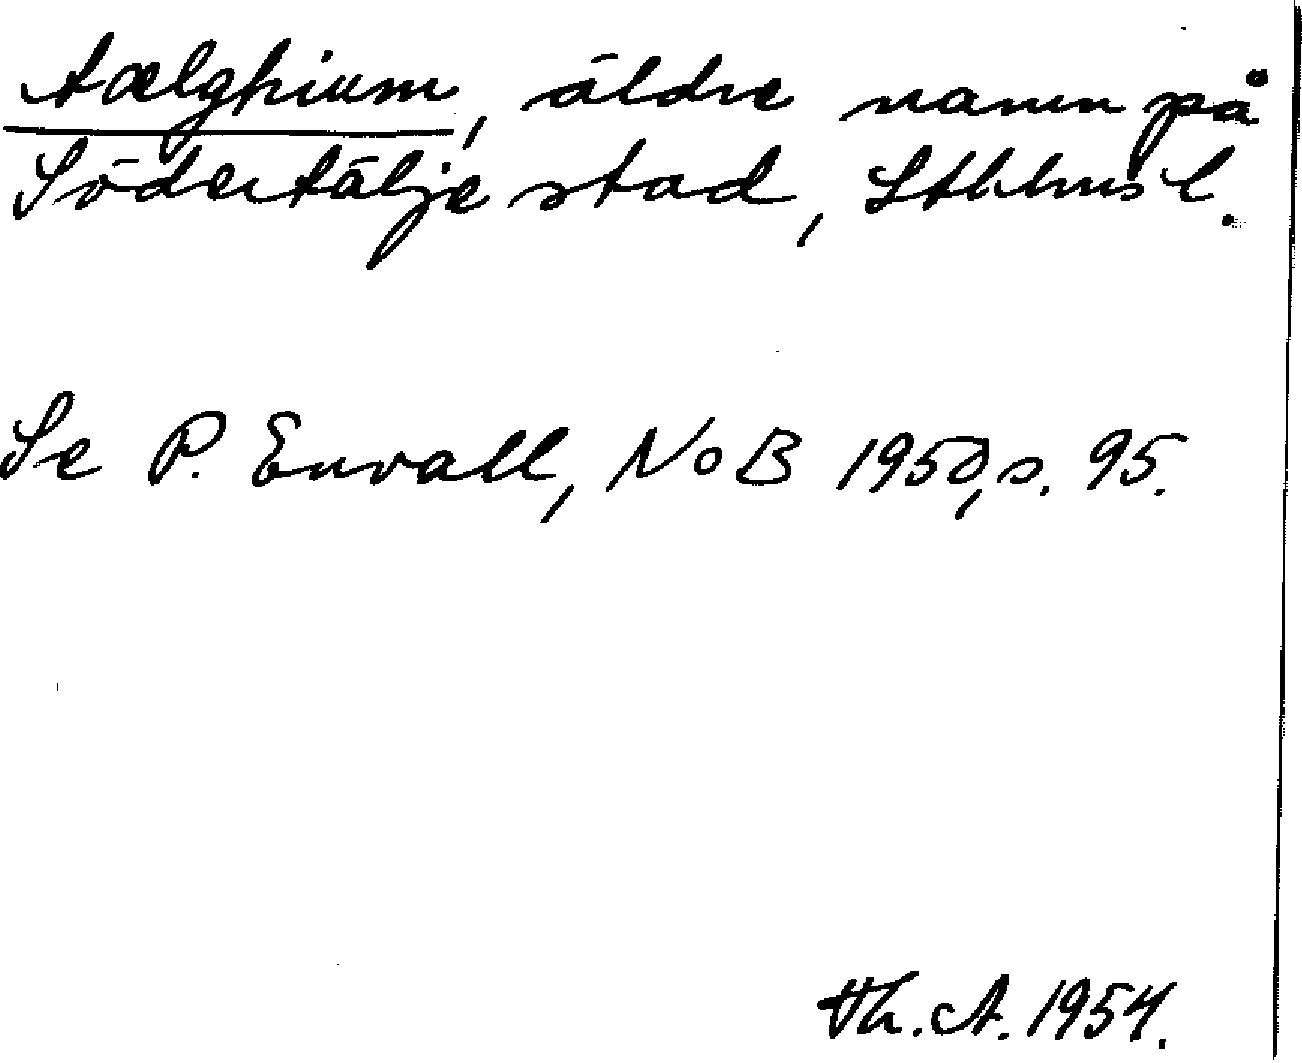 tælghium, äldre namn på
Södertälje stad, Sthlms l.
Se P. Envall, NoB 1950, s. 95.
Th. A. 1954.